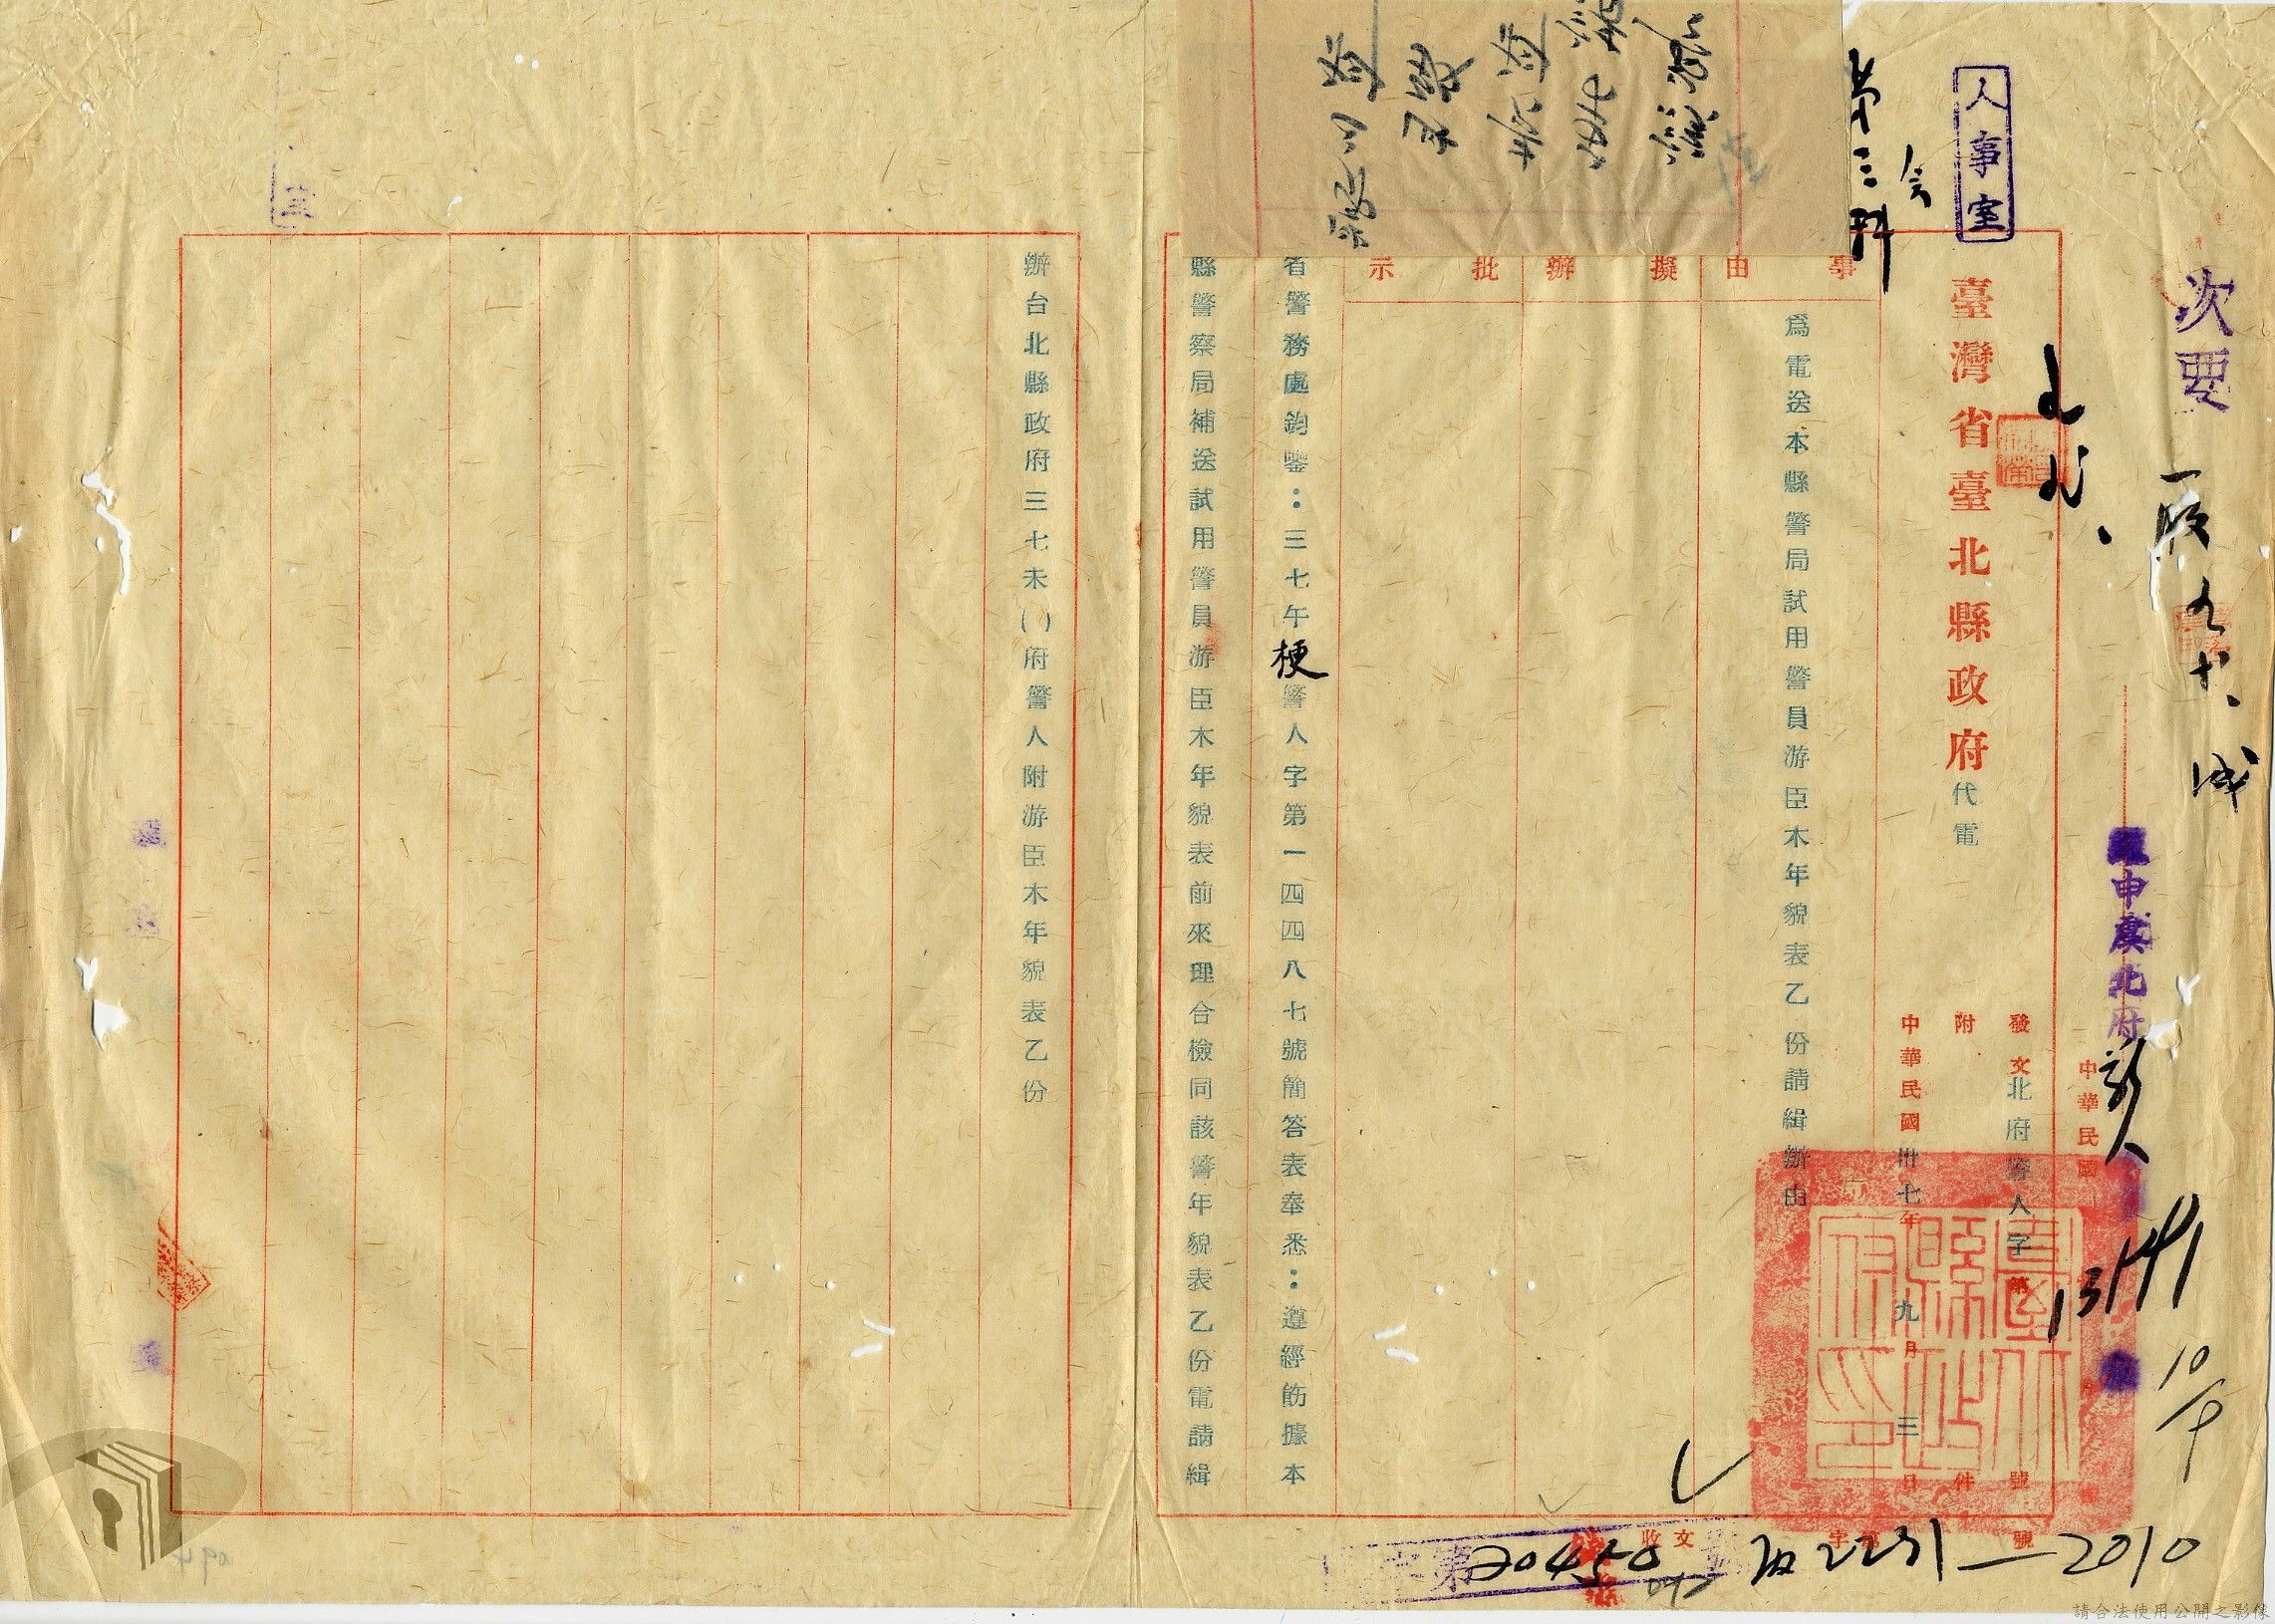 次要
人事室
第三科
會
臺灣省臺北縣政府代電
中華民國
發文北府警人字第 號
附 件
中華民國卅七年九月三日
13141
10/9
事由
擬辦
批示
為電送本縣警局試用警員游臣木年貌表乙份請緝辦由
省警務處鈞鑒：三七午梗警人字第一四四八七號簡答表奉悉：遵經飭據本
縣警察局補送試用警員游臣木年貌表前來理合檢同該警年貌表乙份電請緝
辦台北縣政府三七未( )府警人附游臣木年貌表乙份
臺北縣政府印
收文 字 號
第20450
2231—2010
請合法使用公開之影像